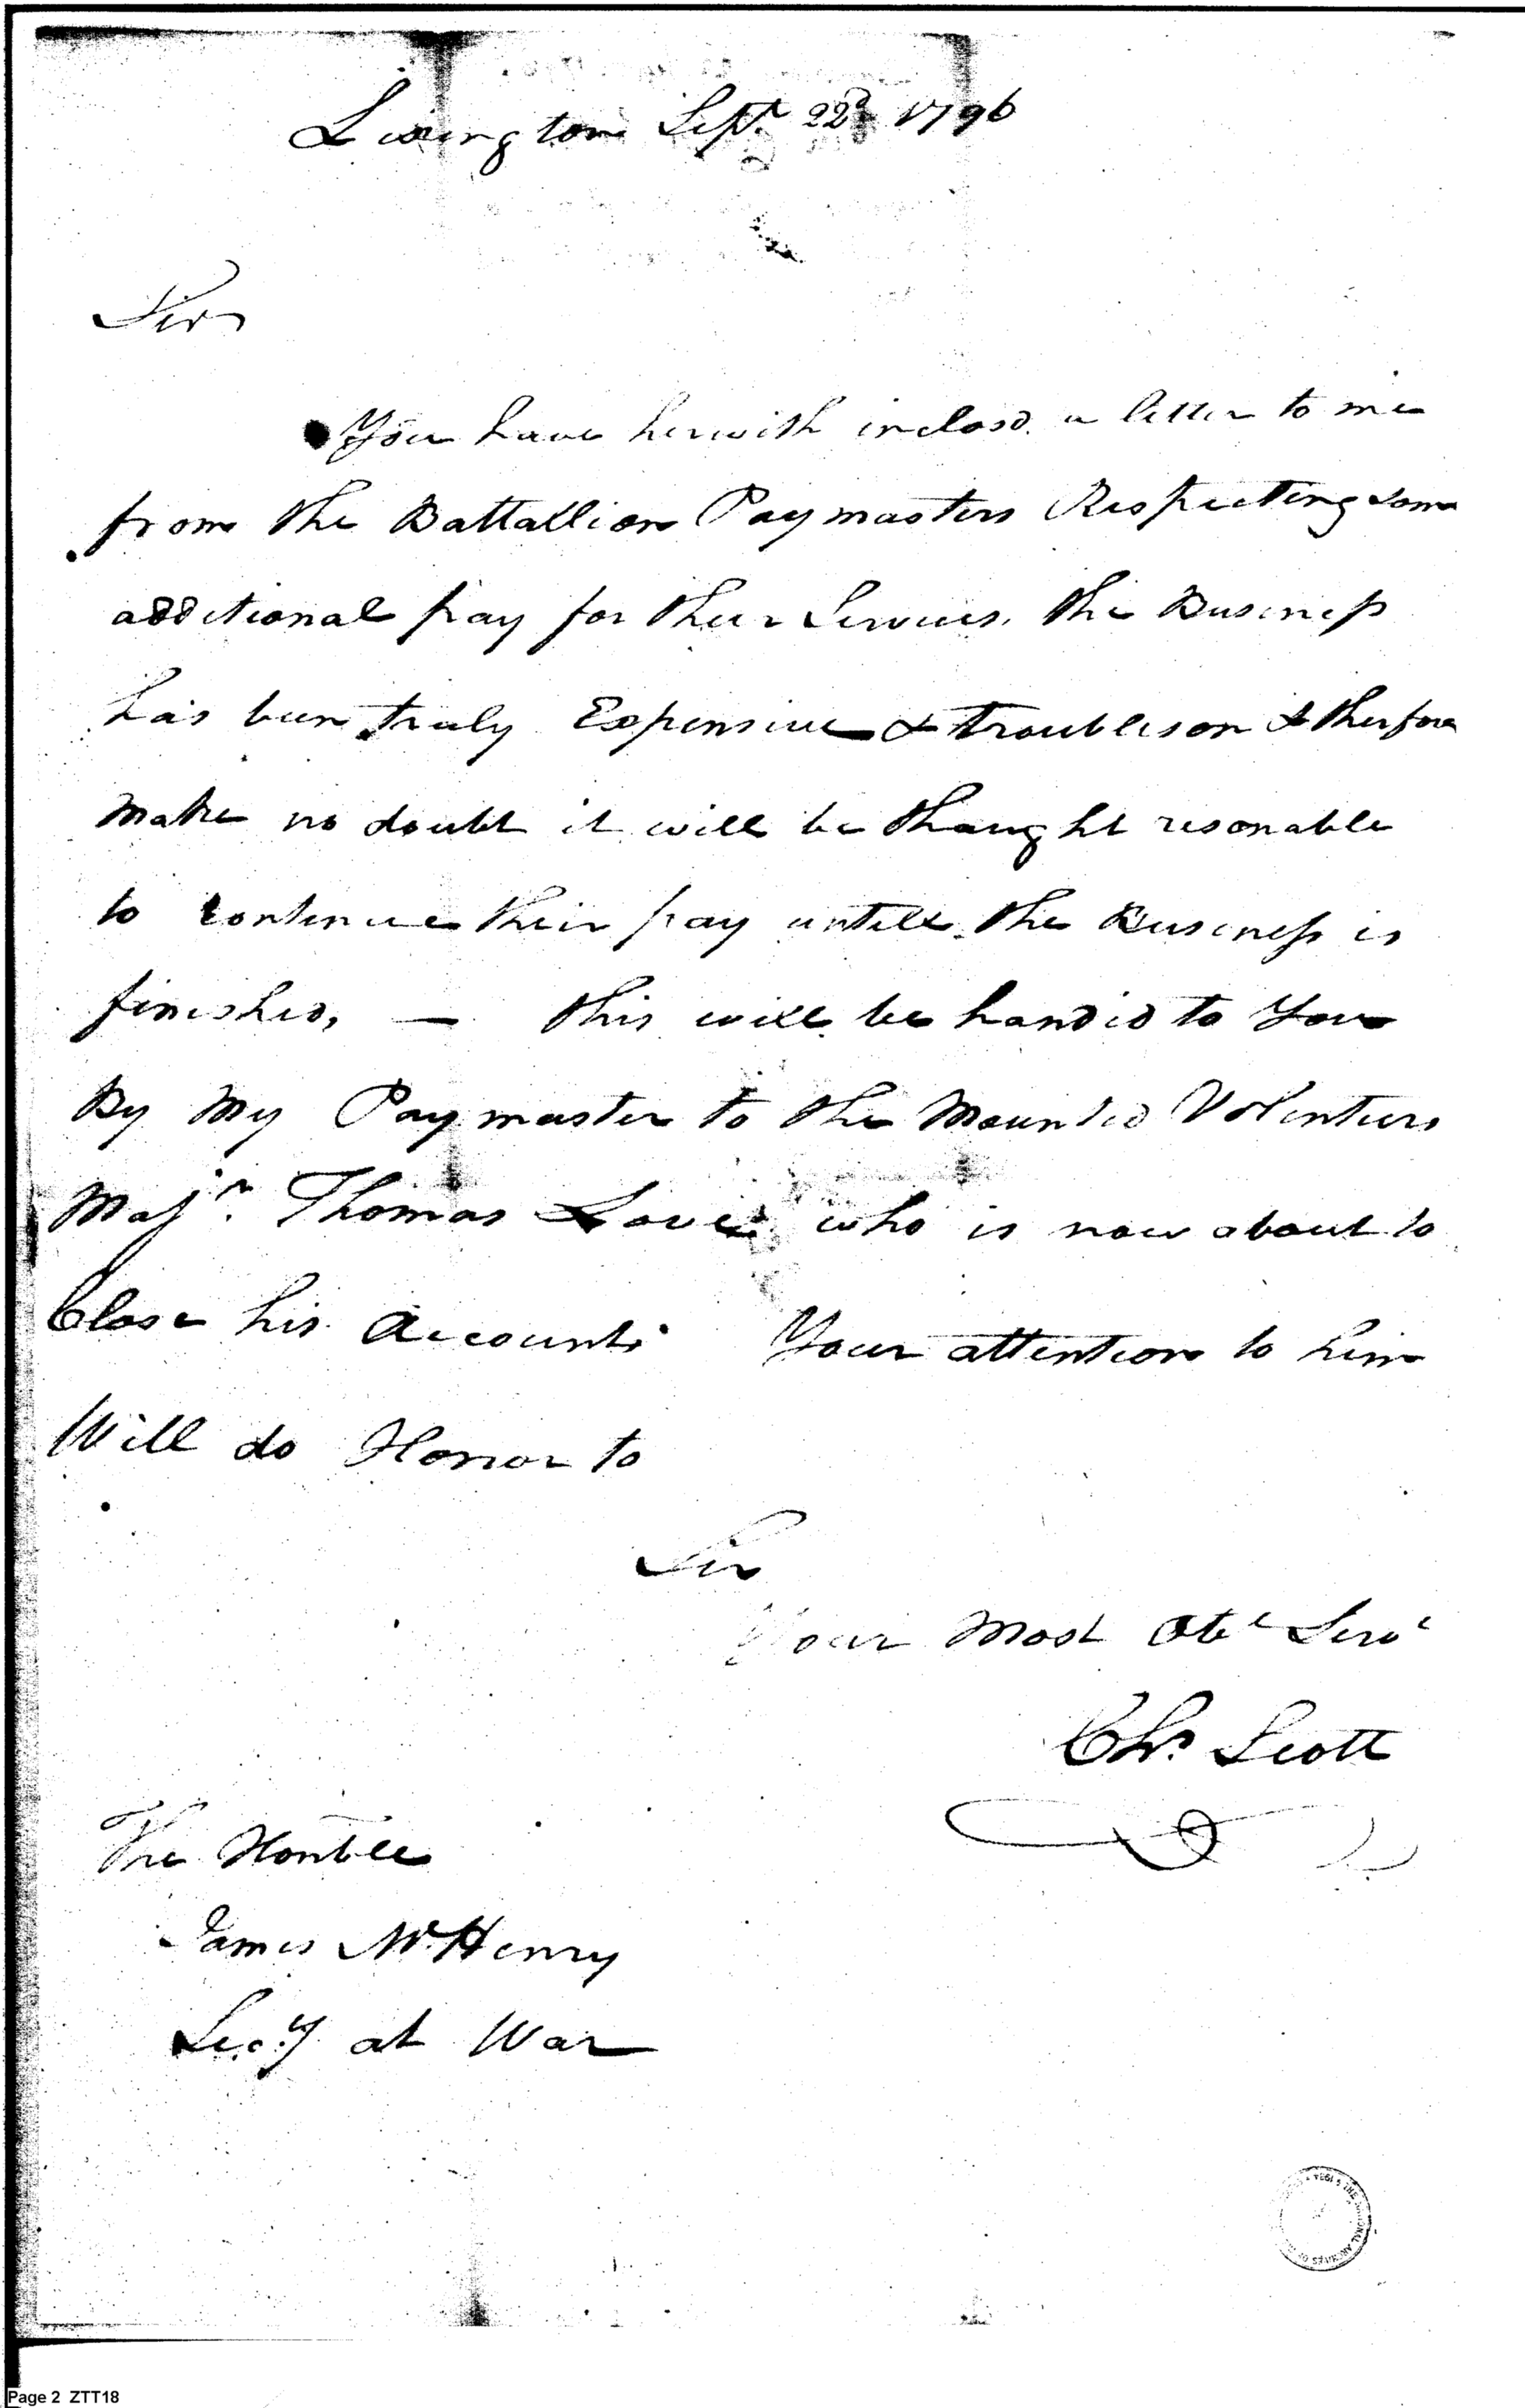 Lexington Sept. 22d 1796
Sir
You have herwith inclosd. a letter to me
from the Battallion Paymasters Respecting some
additional pay for their Services. the Business
has been truly Expensive & troubleson & therfore
make no doubt it will be thought resonable
to continue their pay untill the Business is
finished, — this will be handed to you
By My Paymaster to the Mounted Volenteers
Majr. Thomas Love who is now about to
Close his Accounts Your attention to him
Will do Honor to
Sir
Your Most Obt Servt
Chs. Scott
The Honble
James McHenry
Secy. at War
Page 2 ZTT18